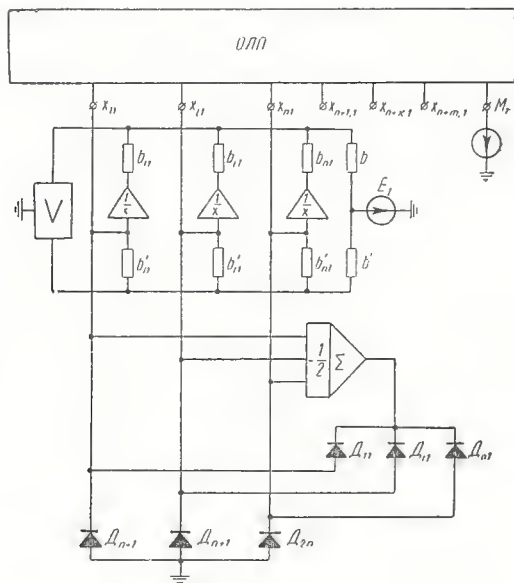 ОЛП
x₁₁ x_i1 x_n1 x_n+1,1 x_n+x,1 x_n+m,1 M_т
b₁₁ b_i1 b_n1 b
V 1/x 1/x 1/x E₁
b'_i1 b'_n1 b'
-1/2 Σ
Д₁₁ Д_i1 Д_n1
Д_n+1 Д_n+1 Д_2n